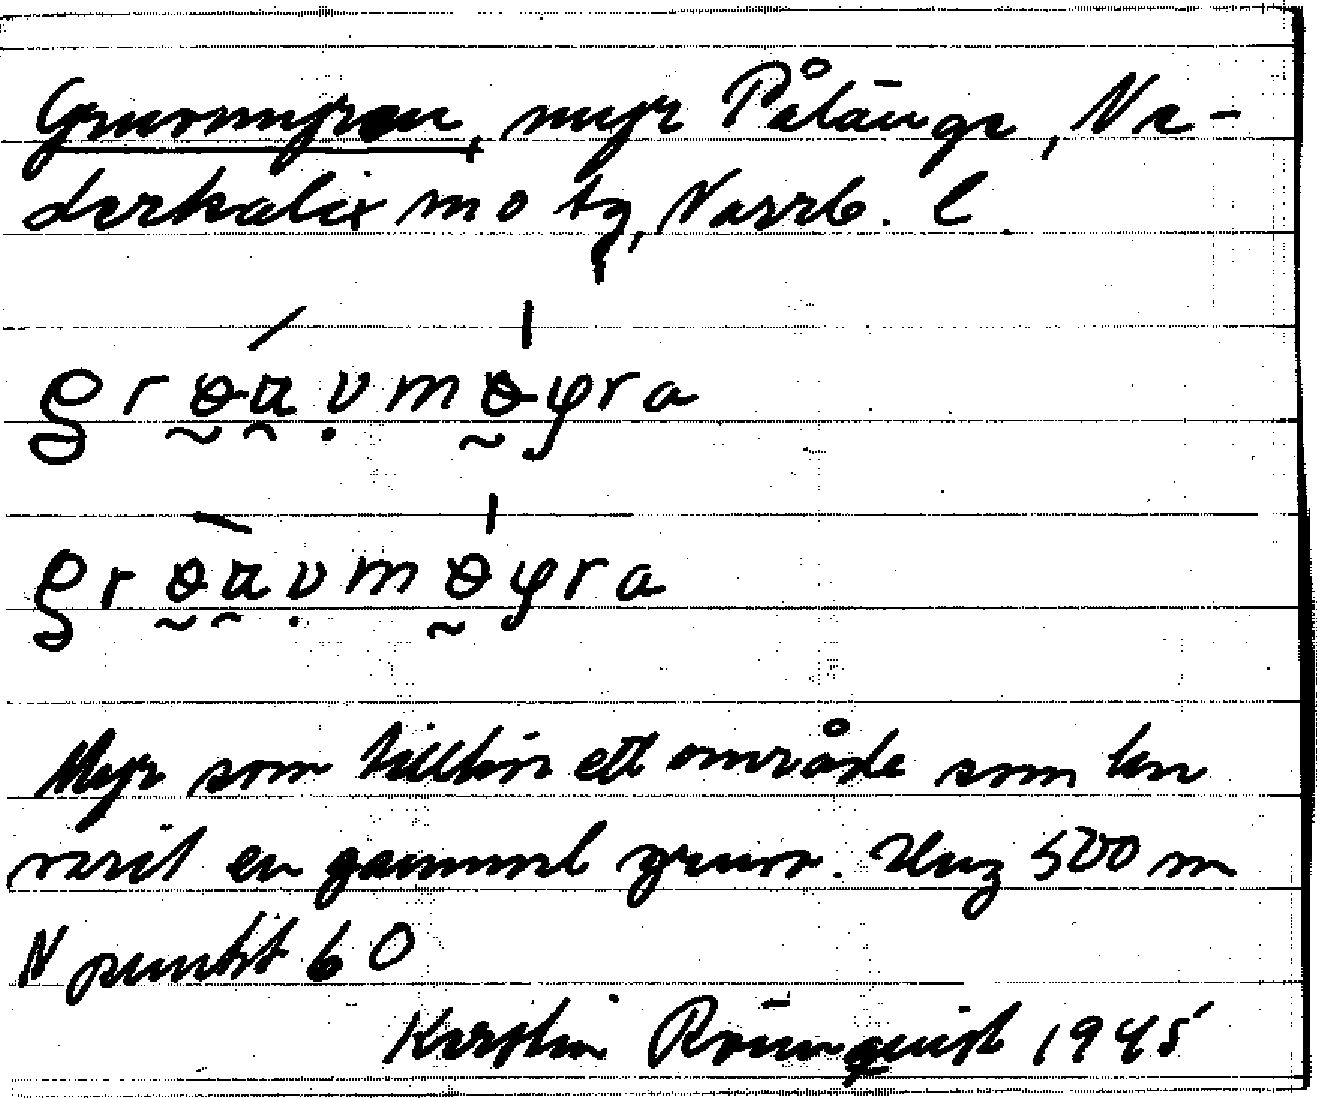 Gruvmyran, myr Påläng, Ne-
derkalix sn o tg, Norrb. l.
grɵaṿmɵyra
grɵaṿmɵyra
Myr som tillhör ett område som
varit en gammal gruva. Una 500 m
N punkt 60
Kerstin Rönnquist 1945